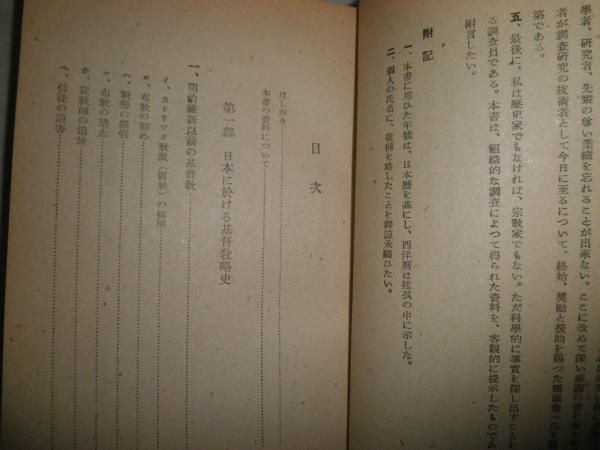 學者、研究者、先輩の尊い業績を忘れることが出來ない。ここに改めて深い
者が調査研究の技術者として今日に至るについて、終始、奬勵と援助を賜つた
第である。
五、最後に、私は歷史家でもなければ、宗敎家でもない。ただ科學的に事實を探し出すことを
る調査員である。本書は、組織的な調査によつて得られた資料を、客觀的に提示したものであ
附言したい。
附記
一、本書に用ひた年號は、日本曆を基にし、西洋曆は括弧の中に示した。
二、個人の氏名に、敬稱を略したことを御諒承願ひたい。
目次
はしがき
本書の資料について
第一部 日本に於ける基督敎略史
一、明治維新以前の基督敎
イ、カトリック敎派(舊敎)の傳來
ロ、布敎の初め
ハ、敎勢の擴張
ニ、布敎の禁止
ホ、宣敎師の追放
ヘ、信徒の迫害